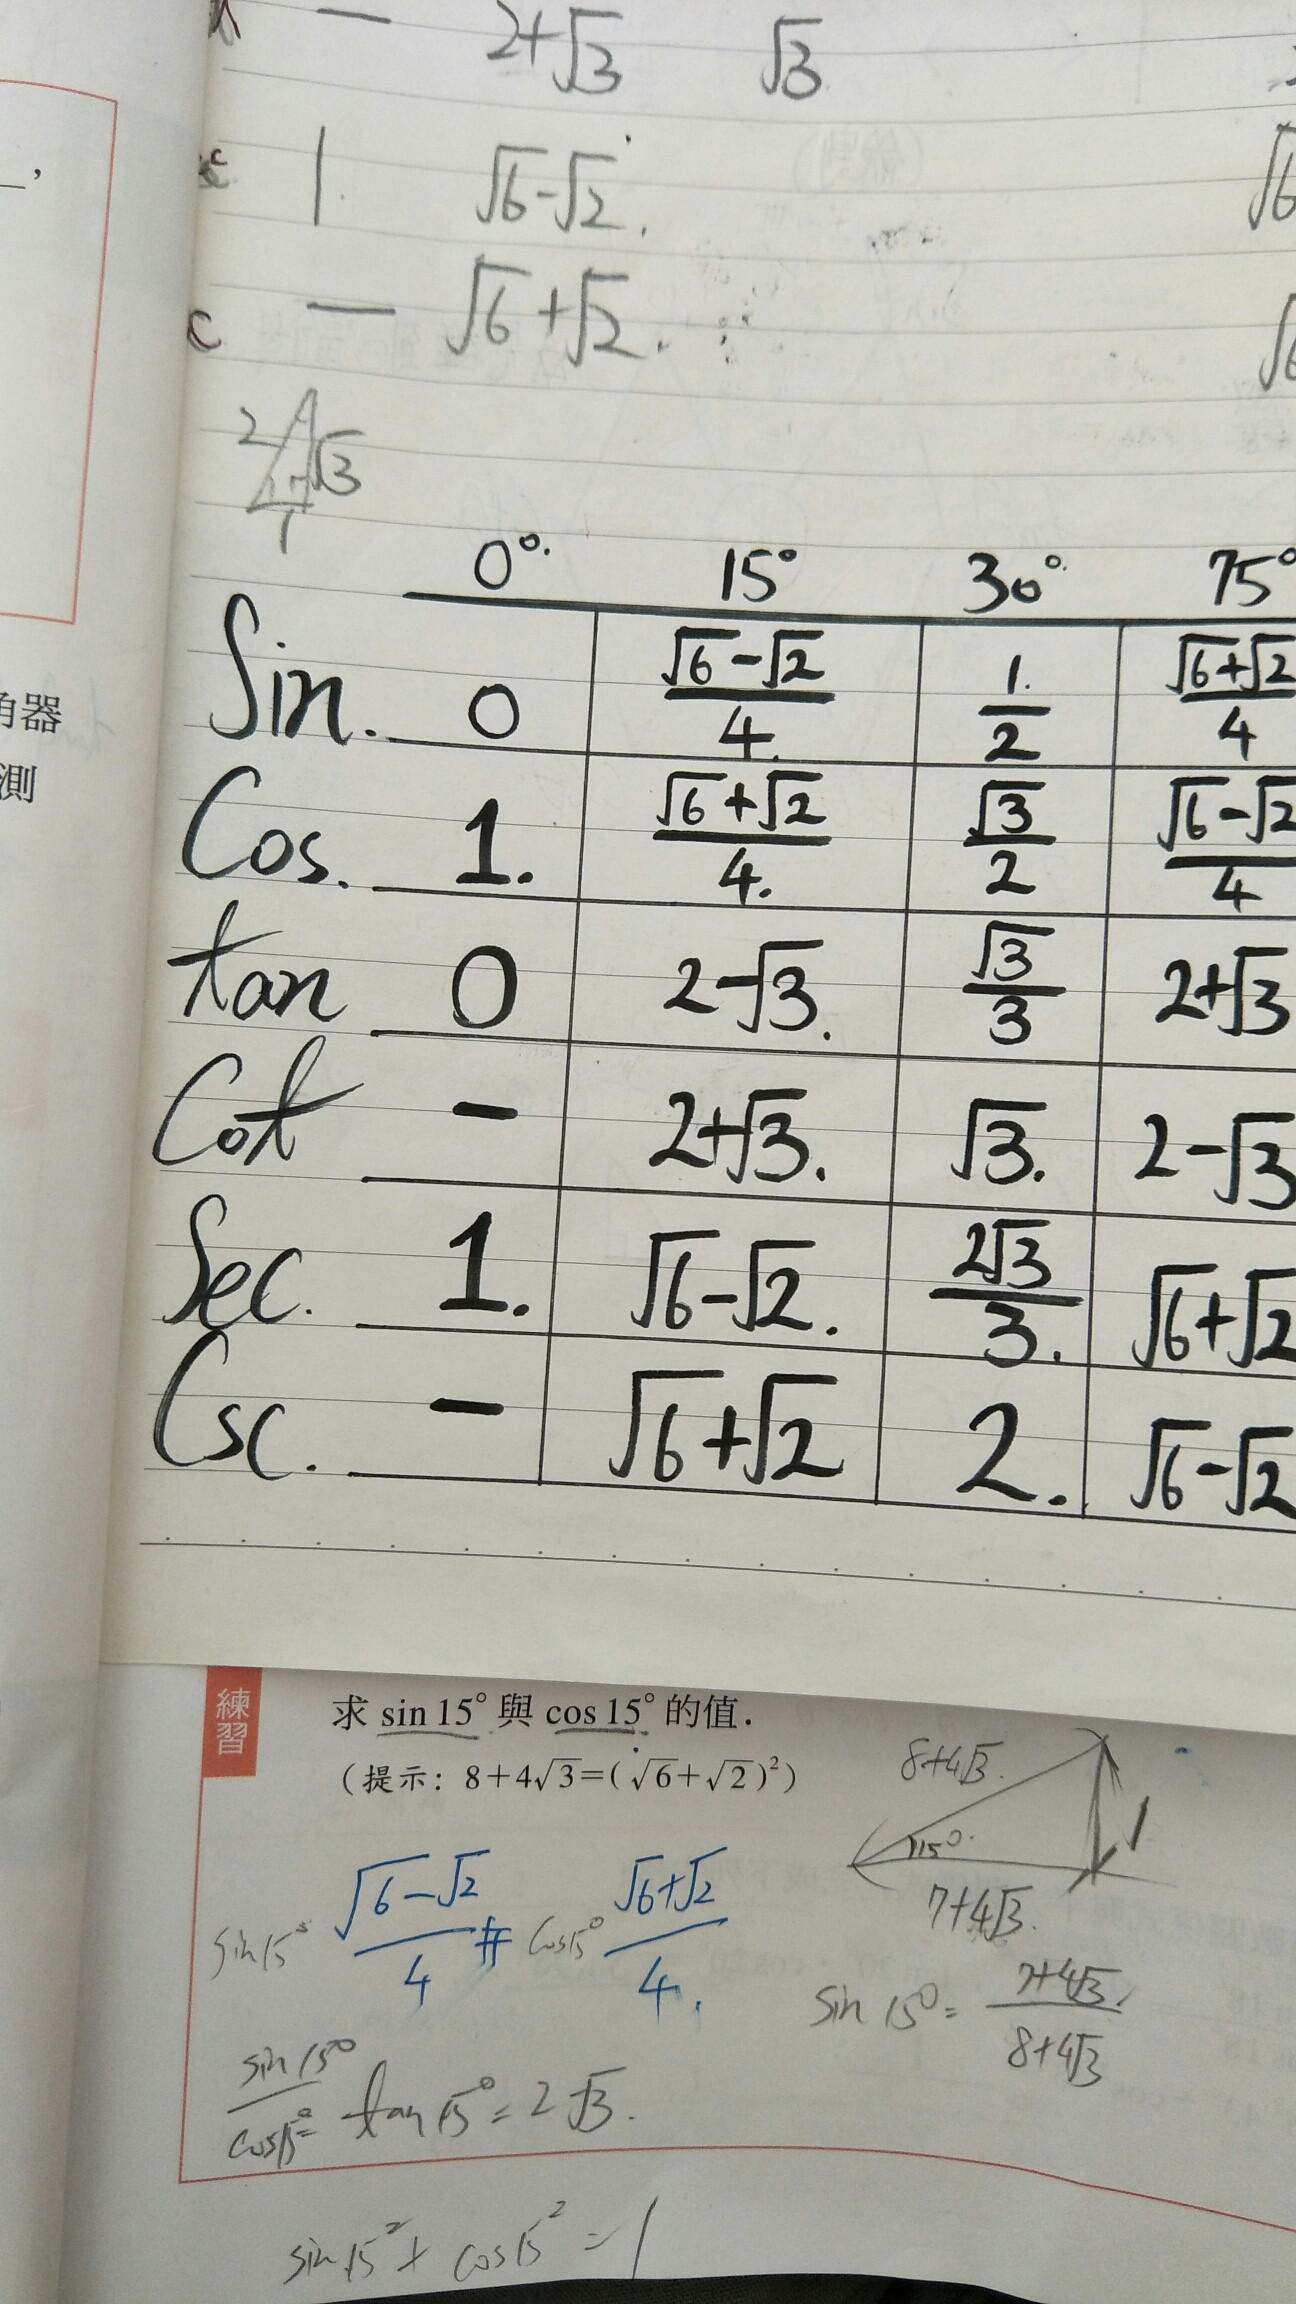 — 2+√3 √3
1. √6-√2.
— √6+√2.
2 √3
1
0° 15° 30° 75°
Sin. 0 (√6-√2)/4. 1/2 (√6+√2)/4
Cos. 1. (√6+√2)/4. √3/2 (√6-√2)/4
tan 0 2-√3. √3/3 2+√3
Cot - 2+√3. √3. 2-√3
Sec. 1. √6-√2. 2√3/3. √6+√2
Csc. - √6+√2 2. √6-√2
角器
測
練習
求 sin 15° 與 cos 15° 的值.
(提示: 8+4√3=(√6+√2)²)
8+4√3.
15°
1
7+4√3.
sin15° (√6-√2)/4 # cos15° (√6+√2)/4.
sin 15° = (7+4√3)/(8+4√3)
sin15°/cos15° = tan15° = 2√3.
sin15²+cos15²=1